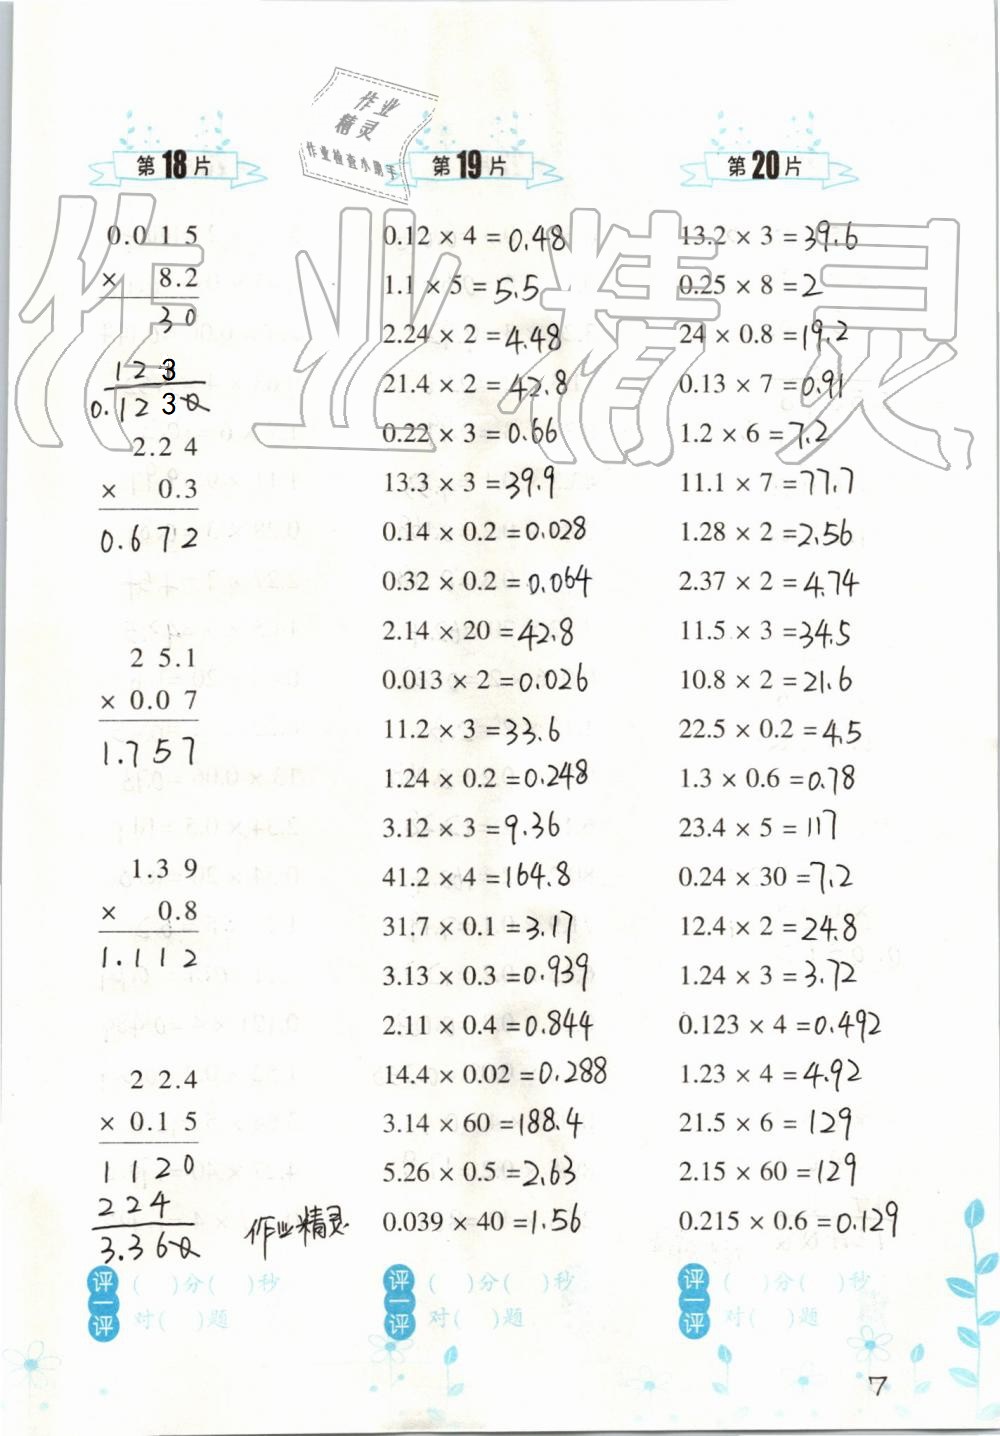 作业
精灵
作业检查小助手
第18片
0.015
× 8.2
30
123
0.1230
2.24
× 0.3
0.672
25.1
× 0.07
1.757
1.39
× 0.8
1.112
22.4
× 0.15
1120
224
3.360
作业精灵
评一评
( )分( )秒
对( )题
第19片
0.12 × 4 = 0.48
1.1 × 5 = 5.5
2.24 × 2 = 4.48
21.4 × 2 = 42.8
0.22 × 3 = 0.66
13.3 × 3 = 39.9
0.14 × 0.2 = 0.028
0.32 × 0.2 = 0.064
2.14 × 20 = 42.8
0.013 × 2 = 0.026
11.2 × 3 = 33.6
1.24 × 0.2 = 0.248
3.12 × 3 = 9.36
41.2 × 4 = 164.8
31.7 × 0.1 = 3.17
3.13 × 0.3 = 0.939
2.11 × 0.4 = 0.844
14.4 × 0.02 = 0.288
3.14 × 60 = 188.4
5.26 × 0.5 = 2.63
0.039 × 40 = 1.56
评一评
( )分( )秒
对( )题
第20片
13.2 × 3 = 39.6
0.25 × 8 = 2
24 × 0.8 = 19.2
0.13 × 7 = 0.91
1.2 × 6 = 7.2
11.1 × 7 = 77.7
1.28 × 2 = 2.56
2.37 × 2 = 4.74
11.5 × 3 = 34.5
10.8 × 2 = 21.6
22.5 × 0.2 = 4.5
1.3 × 0.6 = 0.78
23.4 × 5 = 117
0.24 × 30 = 7.2
12.4 × 2 = 24.8
1.24 × 3 = 3.72
0.123 × 4 = 0.492
1.23 × 4 = 4.92
21.5 × 6 = 129
2.15 × 60 = 129
0.215 × 0.6 = 0.129
评一评
( )分( )秒
对( )题
作业精灵
7